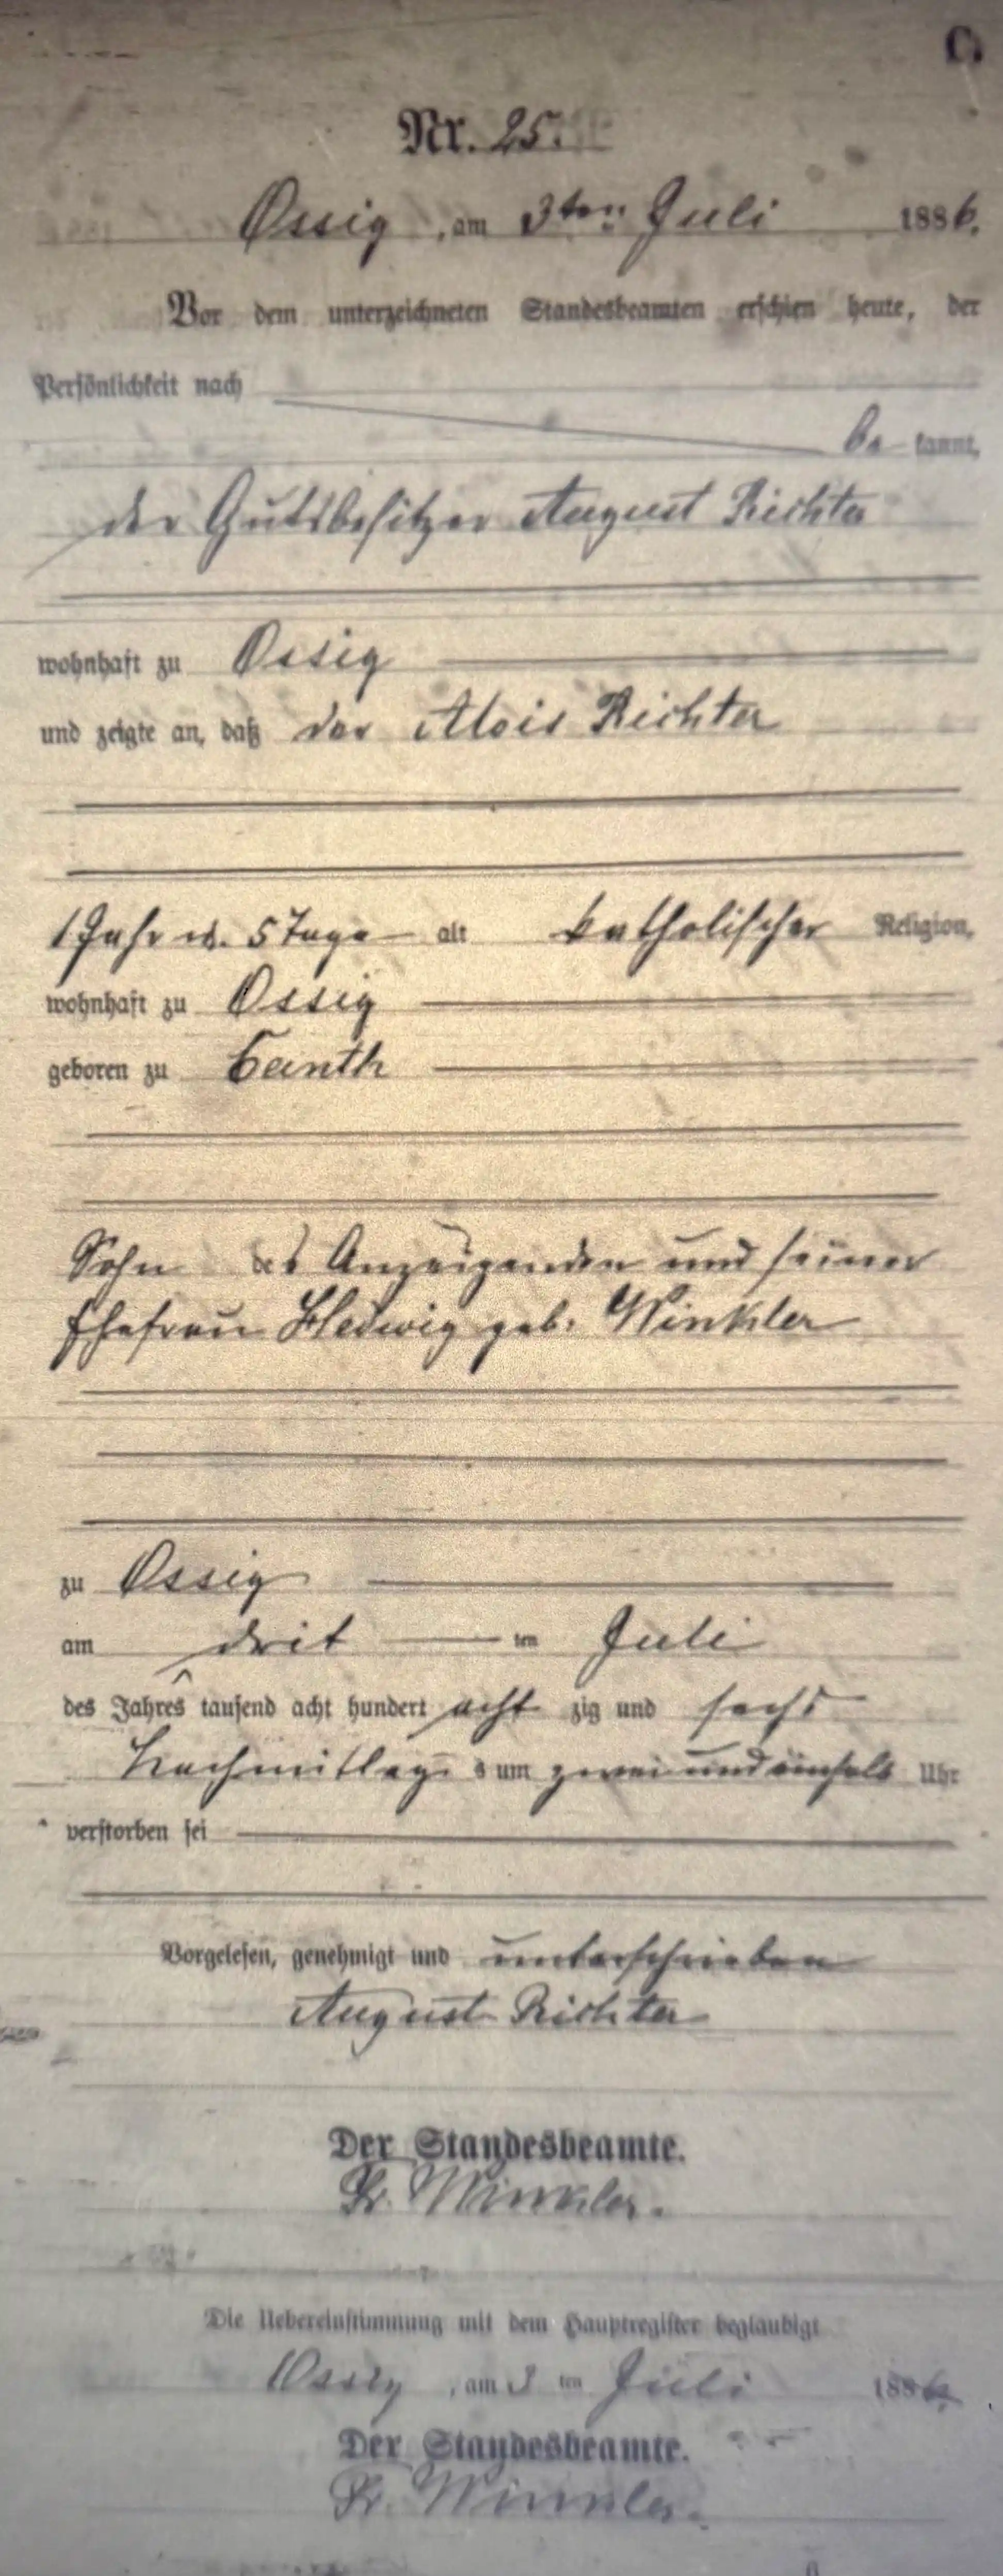 C.
Nr. 25.
Ossig, am 3ten Juli 1886.
Vor dem unterzeichneten Standesbeamten erschien heute, der
Persönlichkeit nach
be kannt,
der Gutsbesitzer August Richter
wohnhaft zu Ossig
und zeigte an, daß der Alois Richter
1 Jahr u. 5 Tage alt katholischer Religion,
wohnhaft zu Ossig
geboren zu Canth
Sohn des Anzeigenden und seiner
Ehefrau Hedwig geb. Winkler
zu Ossig
am drit ten Juli
des Jahres tausend acht hundert acht zig und sechs
Nachmittag s um zwei und einhalb Uhr
verstorben sei
Vorgelesen, genehmigt und unterschrieben
August Richter
Der Standesbeamte.
Fr. Winkler.
Die Uebereinstimmung mit dem Hauptregister beglaubigt
Ossig, am 3 ten Juli 1886.
Der Standesbeamte.
Fr. Winkler.